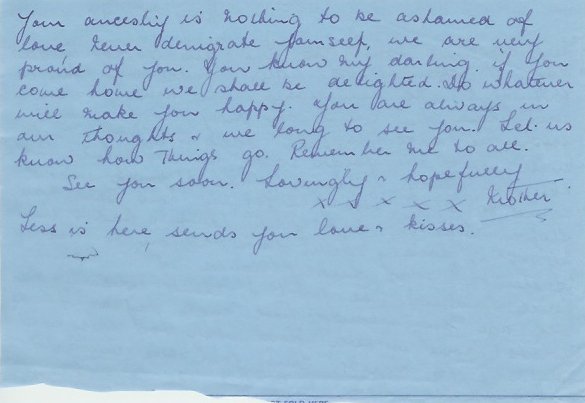 Your ancestry is nothing to be ashamed of
love never denigrate yourself, we are very
proud of you. You know my darling if you
come home we shall be delighted. Do whatever
will make you happy. You are always in
our thoughts & we long to see you. Let us
know how things go. Remember me to all.
See you soon. Lovingly & hopefully
x x x x x Mother
Less is here, sends you love & kisses.